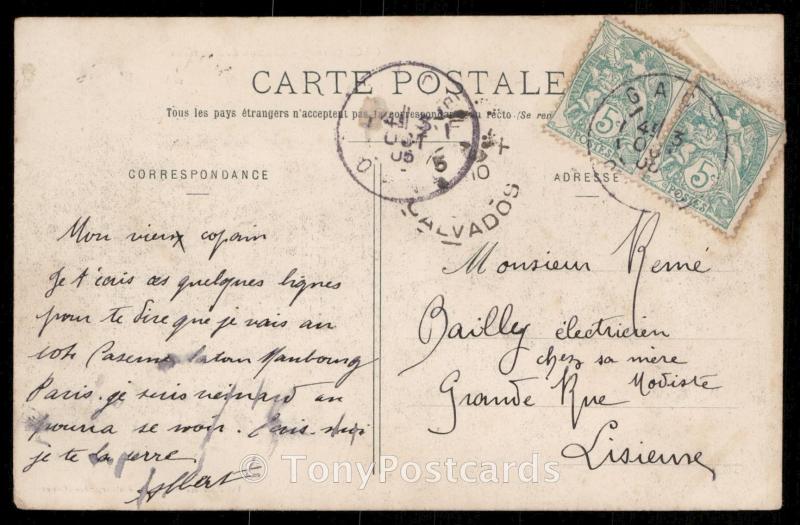 CARTE POSTALE
Tous les pays étrangers n'acceptent pas la correspondance au recto (Se ren
CORRESPONDANCE
ADRESSE
CALVADOS
5
POSTES
5
POSTES
Mon vieux copain
Je t'écris ces quelques lignes
pour te dire que je vais au
Caserne Latour Maubourg
Paris. je suis veinard on
pourra se voir.
je te la serre
Albert
Monsieur Remé
Bailly électricien
chez sa mère
Modiste
Grande Rue
Lisieux
© TonyPostcards